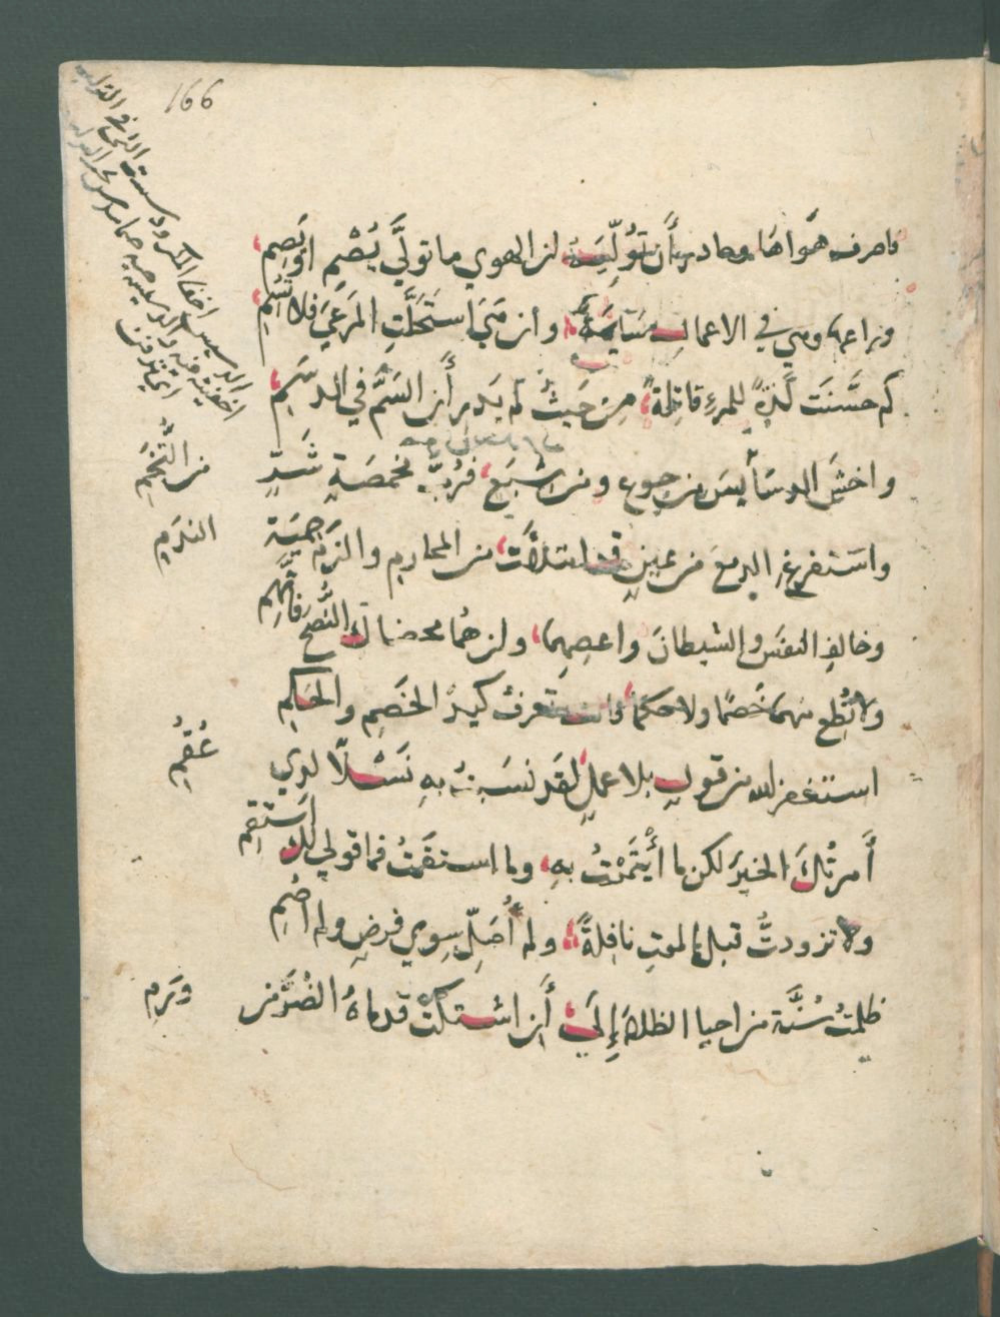 166
فاصرف هَواهَا وحاذر أَن تُوَلِّيَهُ ان الهوي ما تولَّي يُصْمِ او يَصِمِ
وراعها وهي في الاعمالِ سَآيِمَةٌ وان هَيَ استَحلَّتِ المَرعَيَ فلا تُسِمِ
كم حسَّنَت لَذةً للمرءِ قاتِلةً مِن حَيثُ لم يَدرِ أَن السَّمَّ في الدسَمِ
واخشَ الدسَآيسَ من جوعٍ ومن شِبَعٍ فرُبَّ مخمصَةٍ شَرٍّ
من التُّخَمِ
واسَتفرغِ الدمعَ من عينٍ قد امتلأَت من المحارِمِ والزَم حِميَة
الندَمِ
وخالفِ النفسَ والشيطانَ واعصِهِمَا وان هُما محضاك النُّصحَ فَاتَّهِمِ
ولا تُطِع منهما خَصمًا ولا حكمًا فانت تعرفُ كيدَ الخَصمِ والحَكمِ
استغفر الله من قولٍ بلا عملٍ لقد نسَبتُ به نَسْلًا لذي
عُقُمِ
أَمرتُكَ الخيرَ لكن ما أْيتَمَرْتُ بهِ وما استقَمتُ فما قولي لك اسَتقِمِ
ولا تزودتُ قبل الموتِ نافِلةً ولم أُصَلِّ سِوي فرضٍ ولم اصُمِ
ظلمتُ سُنَّة من احيا الظلامَ إِلَيَ أَن اشتكَتْ قدماهُ الضُرَّ من
وَرَمِ